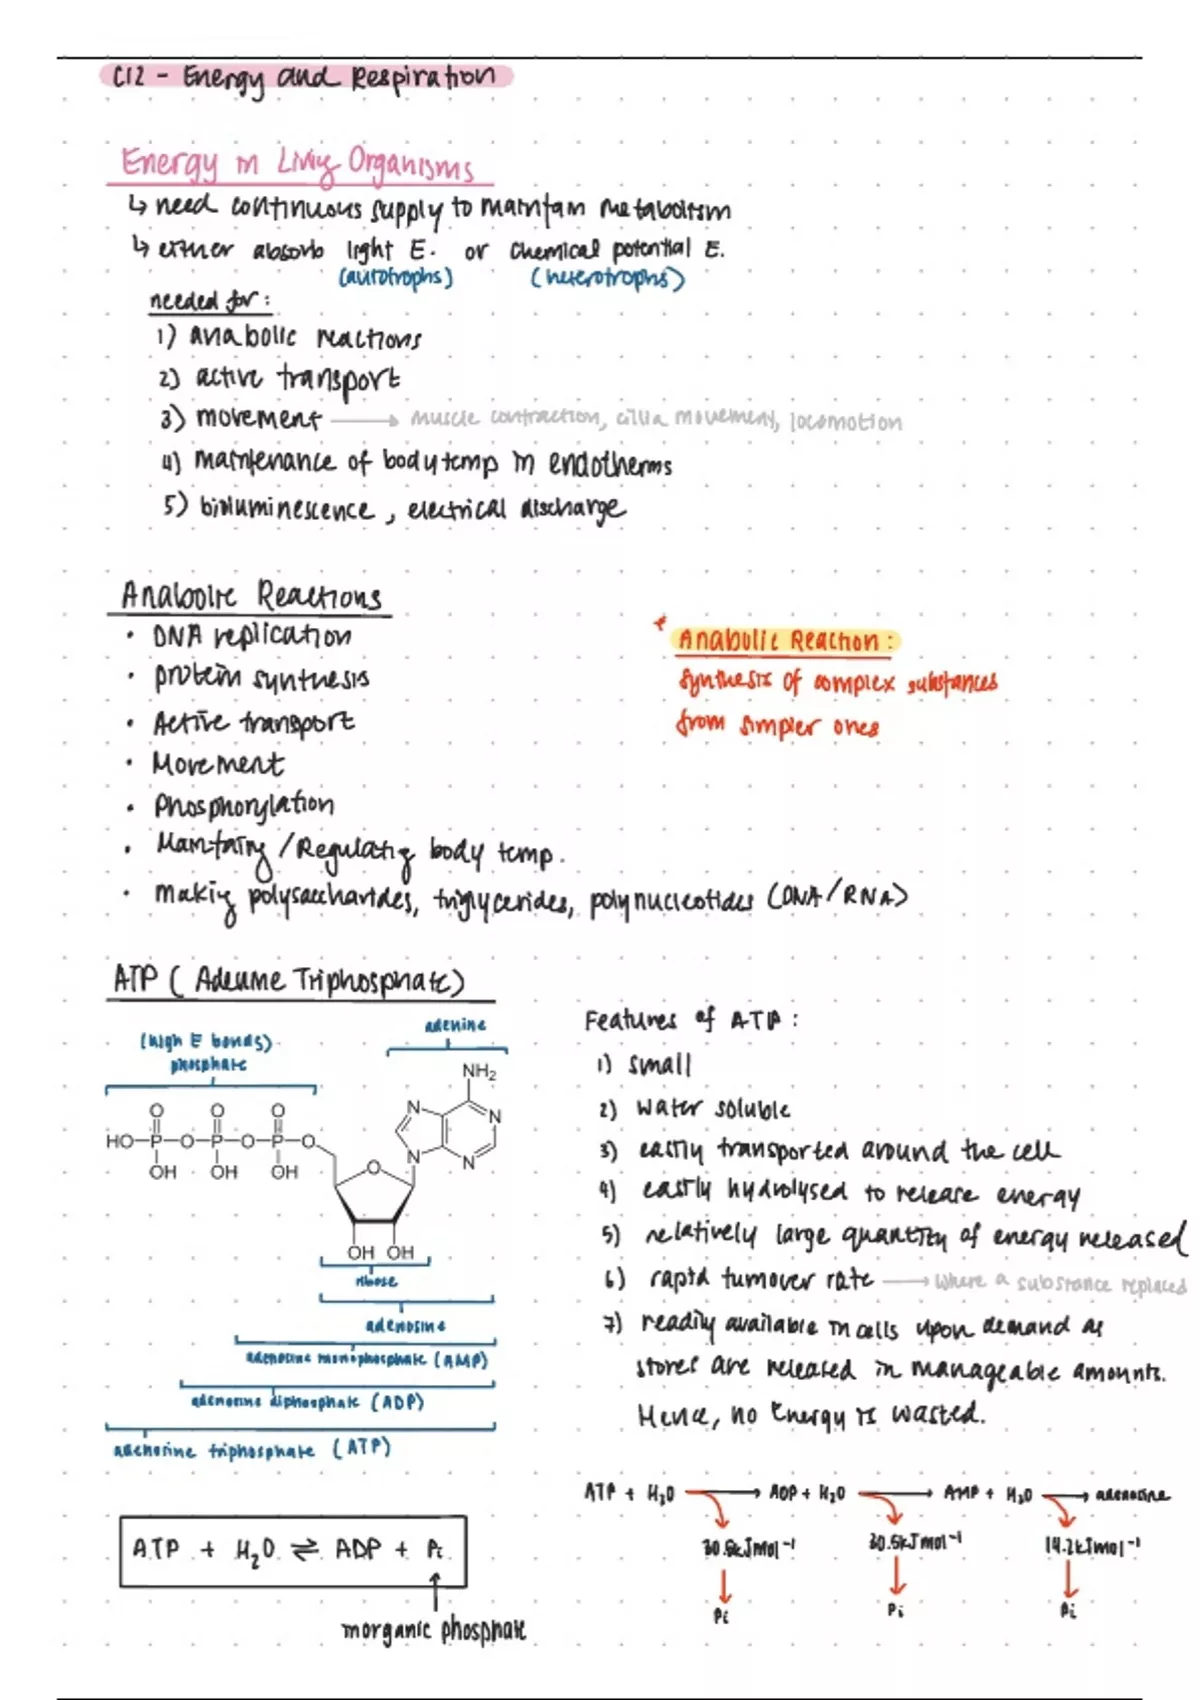 C12 - Energy and Respiration
Energy in Living Organisms
↳ need continuous supply to maintain metabolism
↳ either absorb light E. or chemical potential E.
(autotrophs) (heterotrophs)
needed for:
1) anabolic reactions
2) active transport
3) movement → muscle contraction, cilia movement, locomotion
4) maintenance of body temp in endotherms
5) bioluminescence, electrical discharge
Anabolic Reactions
• DNA replication
• protein synthesis
• Active transport
• Movement
• Phosphorylation
• Maintaing / Regulating body temp.
• making polysaccharides, triglycerides, polynucleotides (DNA/RNA)
* Anabolic Reaction:
synthesis of complex substances
from simpler ones
ATP ( Adenine Triphosphate)
(high E bonds)
phosphate
adenine
NH₂
N N
N N
O O O
HO-P-O-P-O-P-O
OH OH OH
O
OH OH
ribose
adenosine
adenosine monophosphate (AMP)
adenosine diphosphate (ADP)
adenosine triphosphate (ATP)
ATP + H₂O ⇌ ADP + Pi
inorganic phosphate
Features of ATP:
1) small
2) water soluble
3) easily transported around the cell
4) easily hydrolysed to release energy
5) relatively large quantity of energy released
6) rapid turnover rate → where a substance replaced
7) readily available in cells upon demand as
stores are released in manageable amounts.
Hence, no Energy is wasted.
ATP + H₂O → ADP + H₂O → AMP + H₂O → adenosine
30.5kJmol⁻¹ 30.5kJmol⁻¹ 14.2kJmol⁻¹
Pi Pi Pi